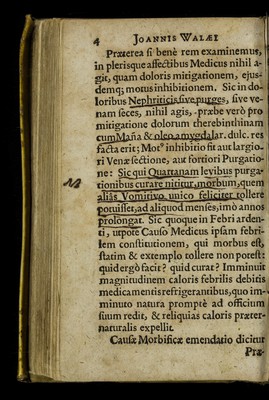 4 JOANNIS WALÆI
Præterea si benè rem examinemus,
in plerisque affectibus Medicus nihil a-
git, quam doloris mitigationem, ejus-
demq; motus inhibitionem. Sic in do-
loribus Nephriticis, sive purges, sive ve-
nam seces, nihil agis, præbe verò pro
mitigatione dolorum therebinthinam
cum Maña & oleo amygdalar. dulc. res
facta erit; Mot⁹ inhibitio fit aut largio-
ri Venæ sectione, aut fortiori Purgatio-
ne: Sic qui Quartanam levibus purga-
NB tionibus curare nititur, morbum, quem
aliàs Vomitivo unico feliciter tollere
potuisset, ad aliquod menses, imò annos
prolongat. Sic quoque in Febri arden-
ti, utpote Causo Medicus ipsam febri-
lem constitutionem, qui morbus est,
statim & extemplo tollere non potest:
quid ergò facit? quid curat? Imminuit
magnitudinem caloris febrilis debitis
medicamentis refrigerantibus, quo im-
minuto natura promptè ad officium
suum redit, & reliquias caloris præter-
naturalis expellit.
Causæ Morbificæ emendatio dicitur
Præ-